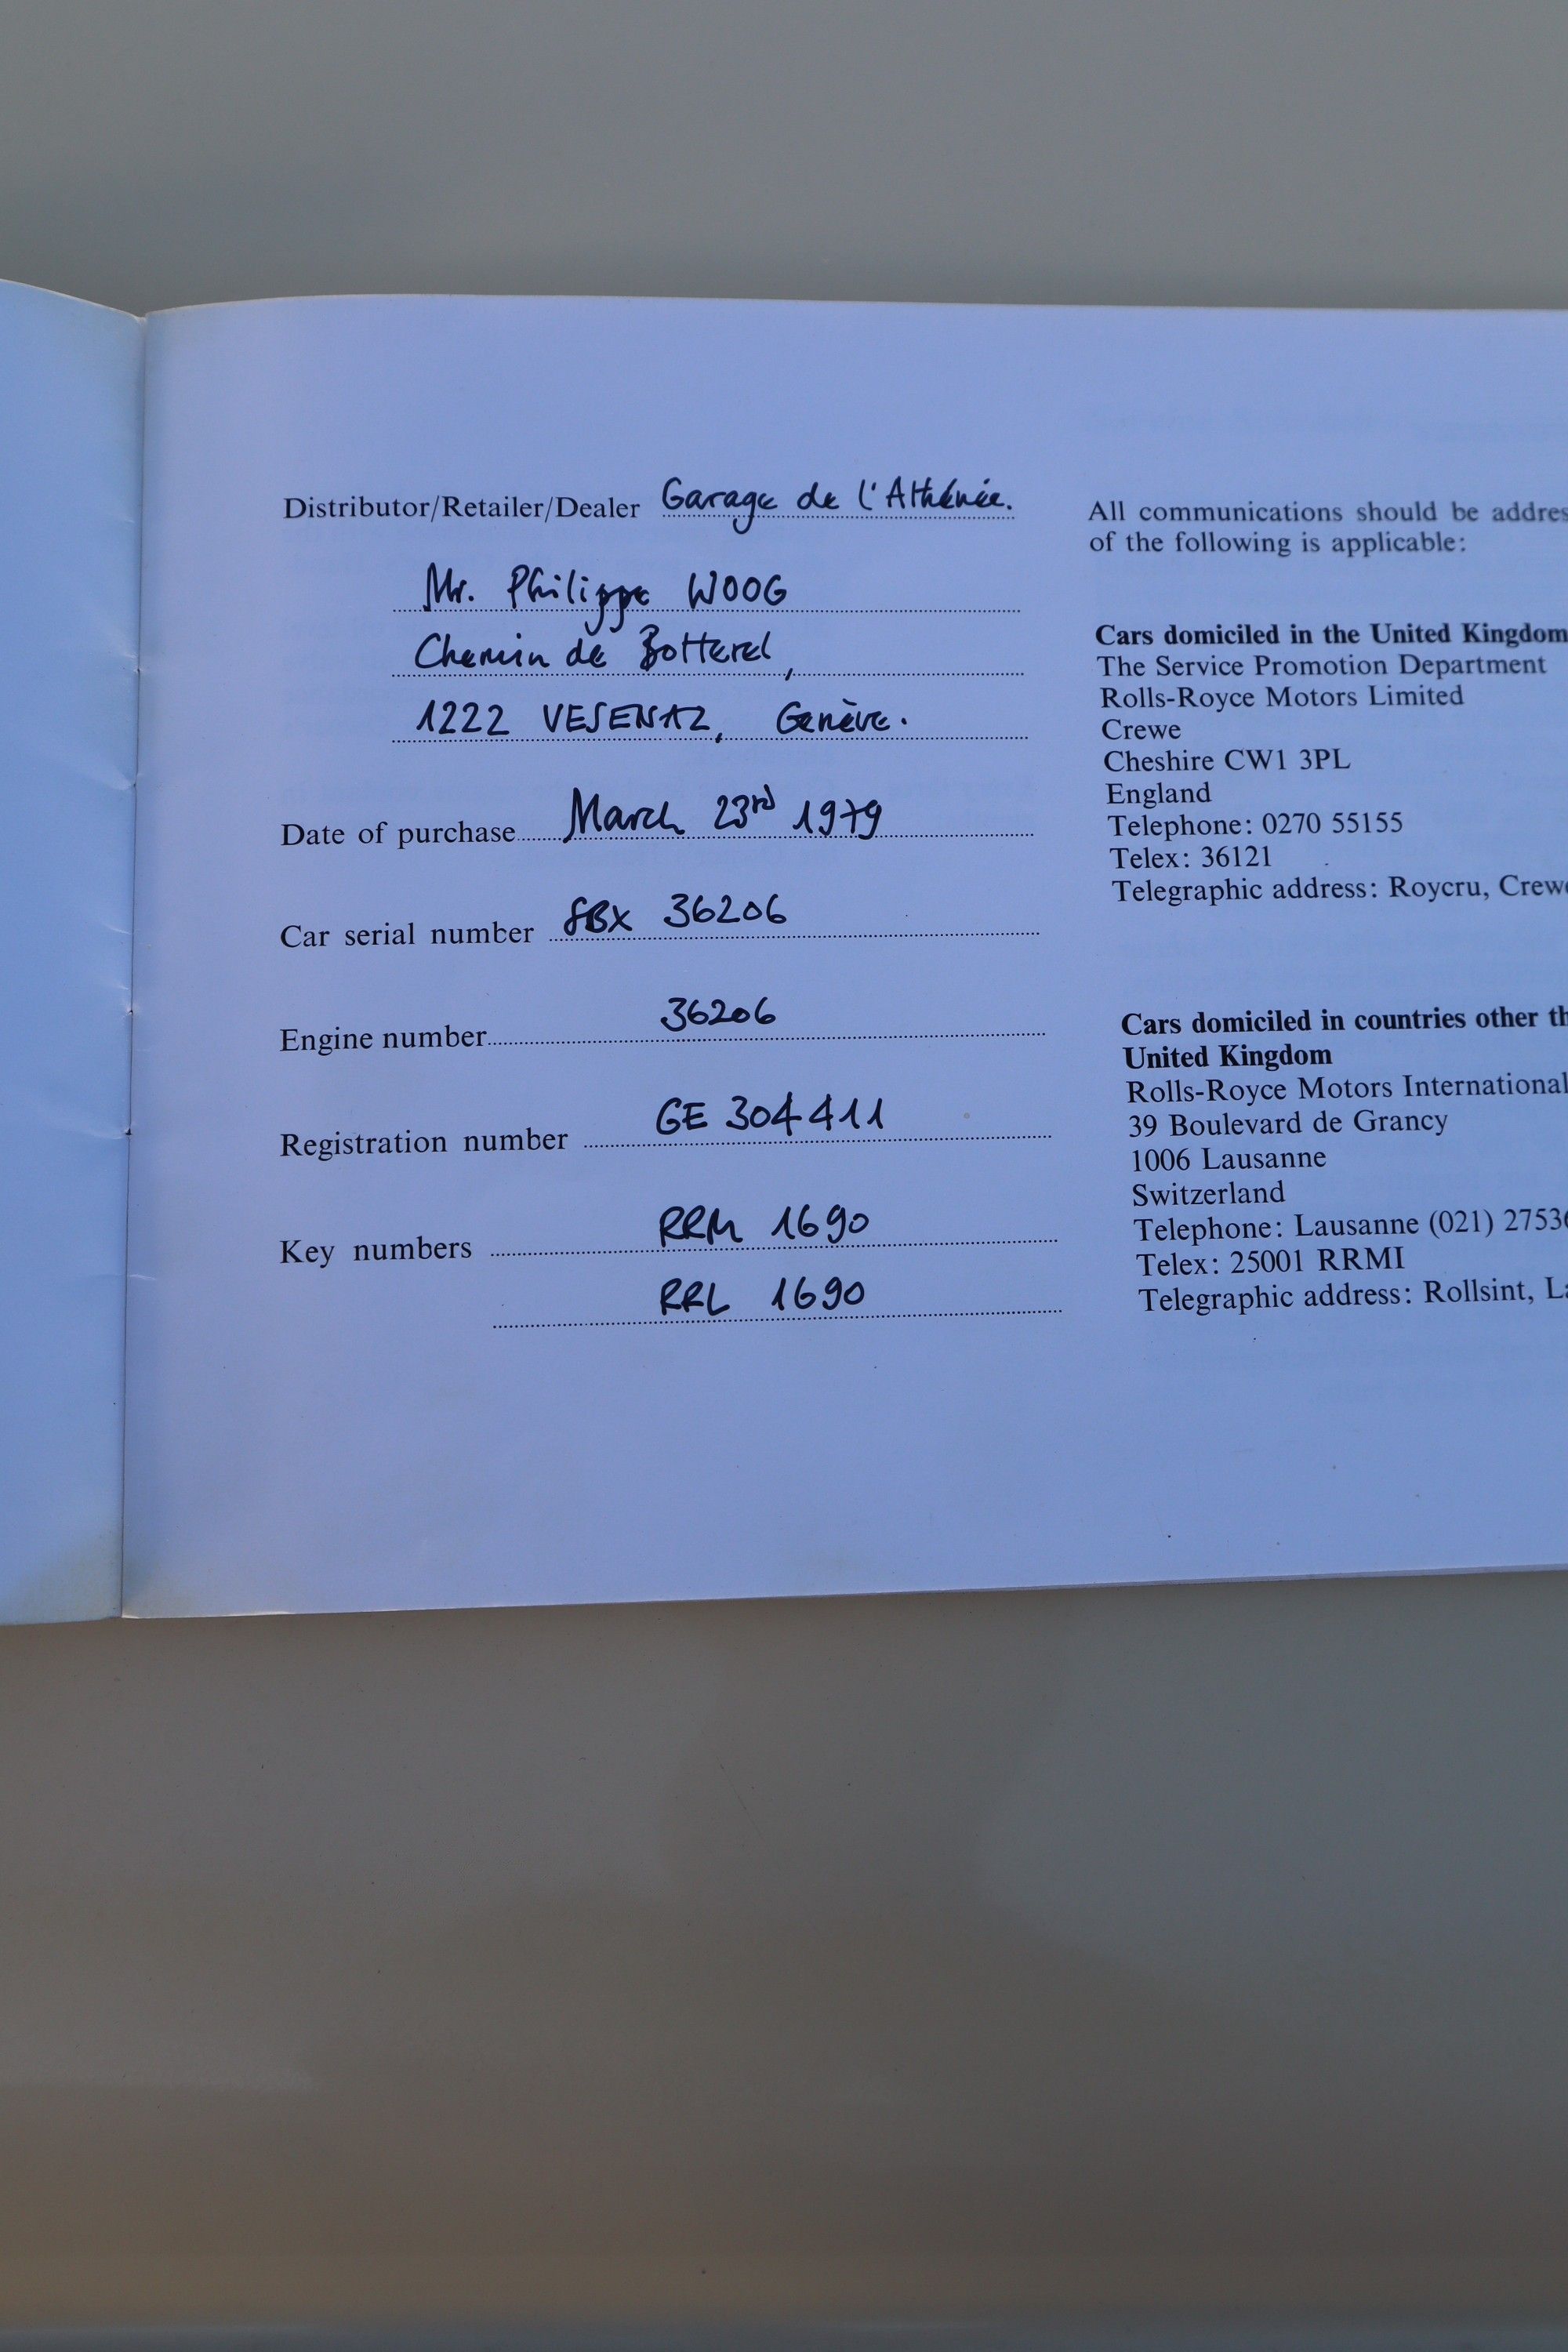 Distributor/Retailer/Dealer Garage de l'Athénée.
Mr. Philippe WOOG
Chemin de Botterel,
1222 VESENAZ, Genève.
Date of purchase March 23rd 1979
Car serial number SBX 36206
Engine number 36206
Registration number GE 304411
Key numbers RRM 1690
RRL 1690
All communications should be addres
of the following is applicable:
Cars domiciled in the United Kingdom
The Service Promotion Department
Rolls-Royce Motors Limited
Crewe
Cheshire CW1 3PL
England
Telephone: 0270 55155
Telex: 36121
Telegraphic address: Roycru, Crewe
Cars domiciled in countries other th
United Kingdom
Rolls-Royce Motors International
39 Boulevard de Grancy
1006 Lausanne
Switzerland
Telephone: Lausanne (021) 27536
Telex: 25001 RRMI
Telegraphic address: Rollsint, La